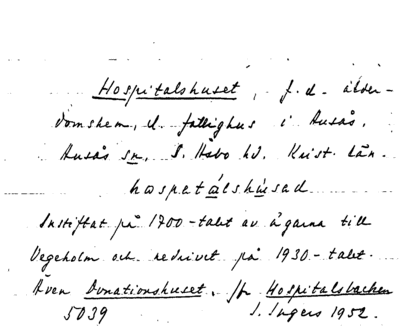 Hospitalshuset, f.d. ålder-
domshem, el. fattighus i Ausås,
Ausås sn, S. Åsbo hd. Krist. län.
haspetálshúsad
Instiftat på 1700-talet av ägarna till
Vegeholm och nedrivet på 1930-talet.
Även Donationshuset. Jfr Hospitalsbacken
5039 I. Ingers 1952.